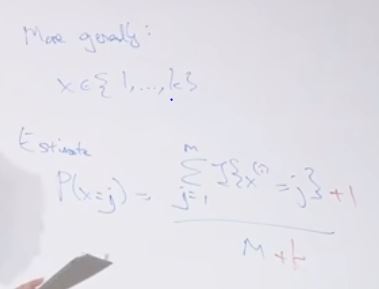 More generally:
x ∈ {1, ..., k}
Estimate
P(x=j) = \frac{\sum_{j=1}^{m} 1\{x^{(i)} = j\} + 1}{m + k}